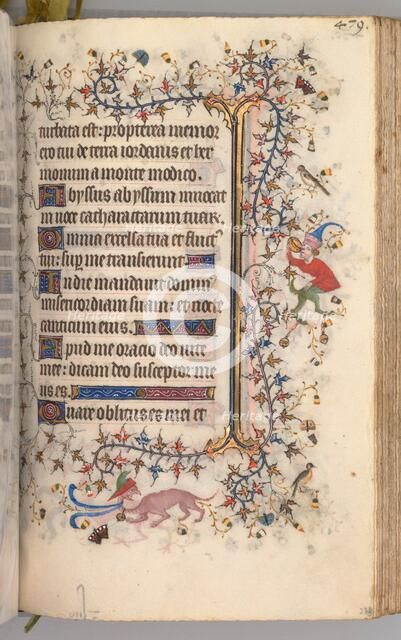 479.
turbata est: propterea memor
ero tui de terra iordanis et her
monium a monte modico.
Abyssus abyssum inuocat
in uoce catharactarum tuarum.
Omnia excelsa tua et fluct
tui: super me transierunt
In die mandauit dominus
misericordiam suam: et nocte
canticum eius.
Apud me oracio deo uite
mee: dicam deo susceptor me
us es.
Quare oblitus es mei et
Heritage
Heritage